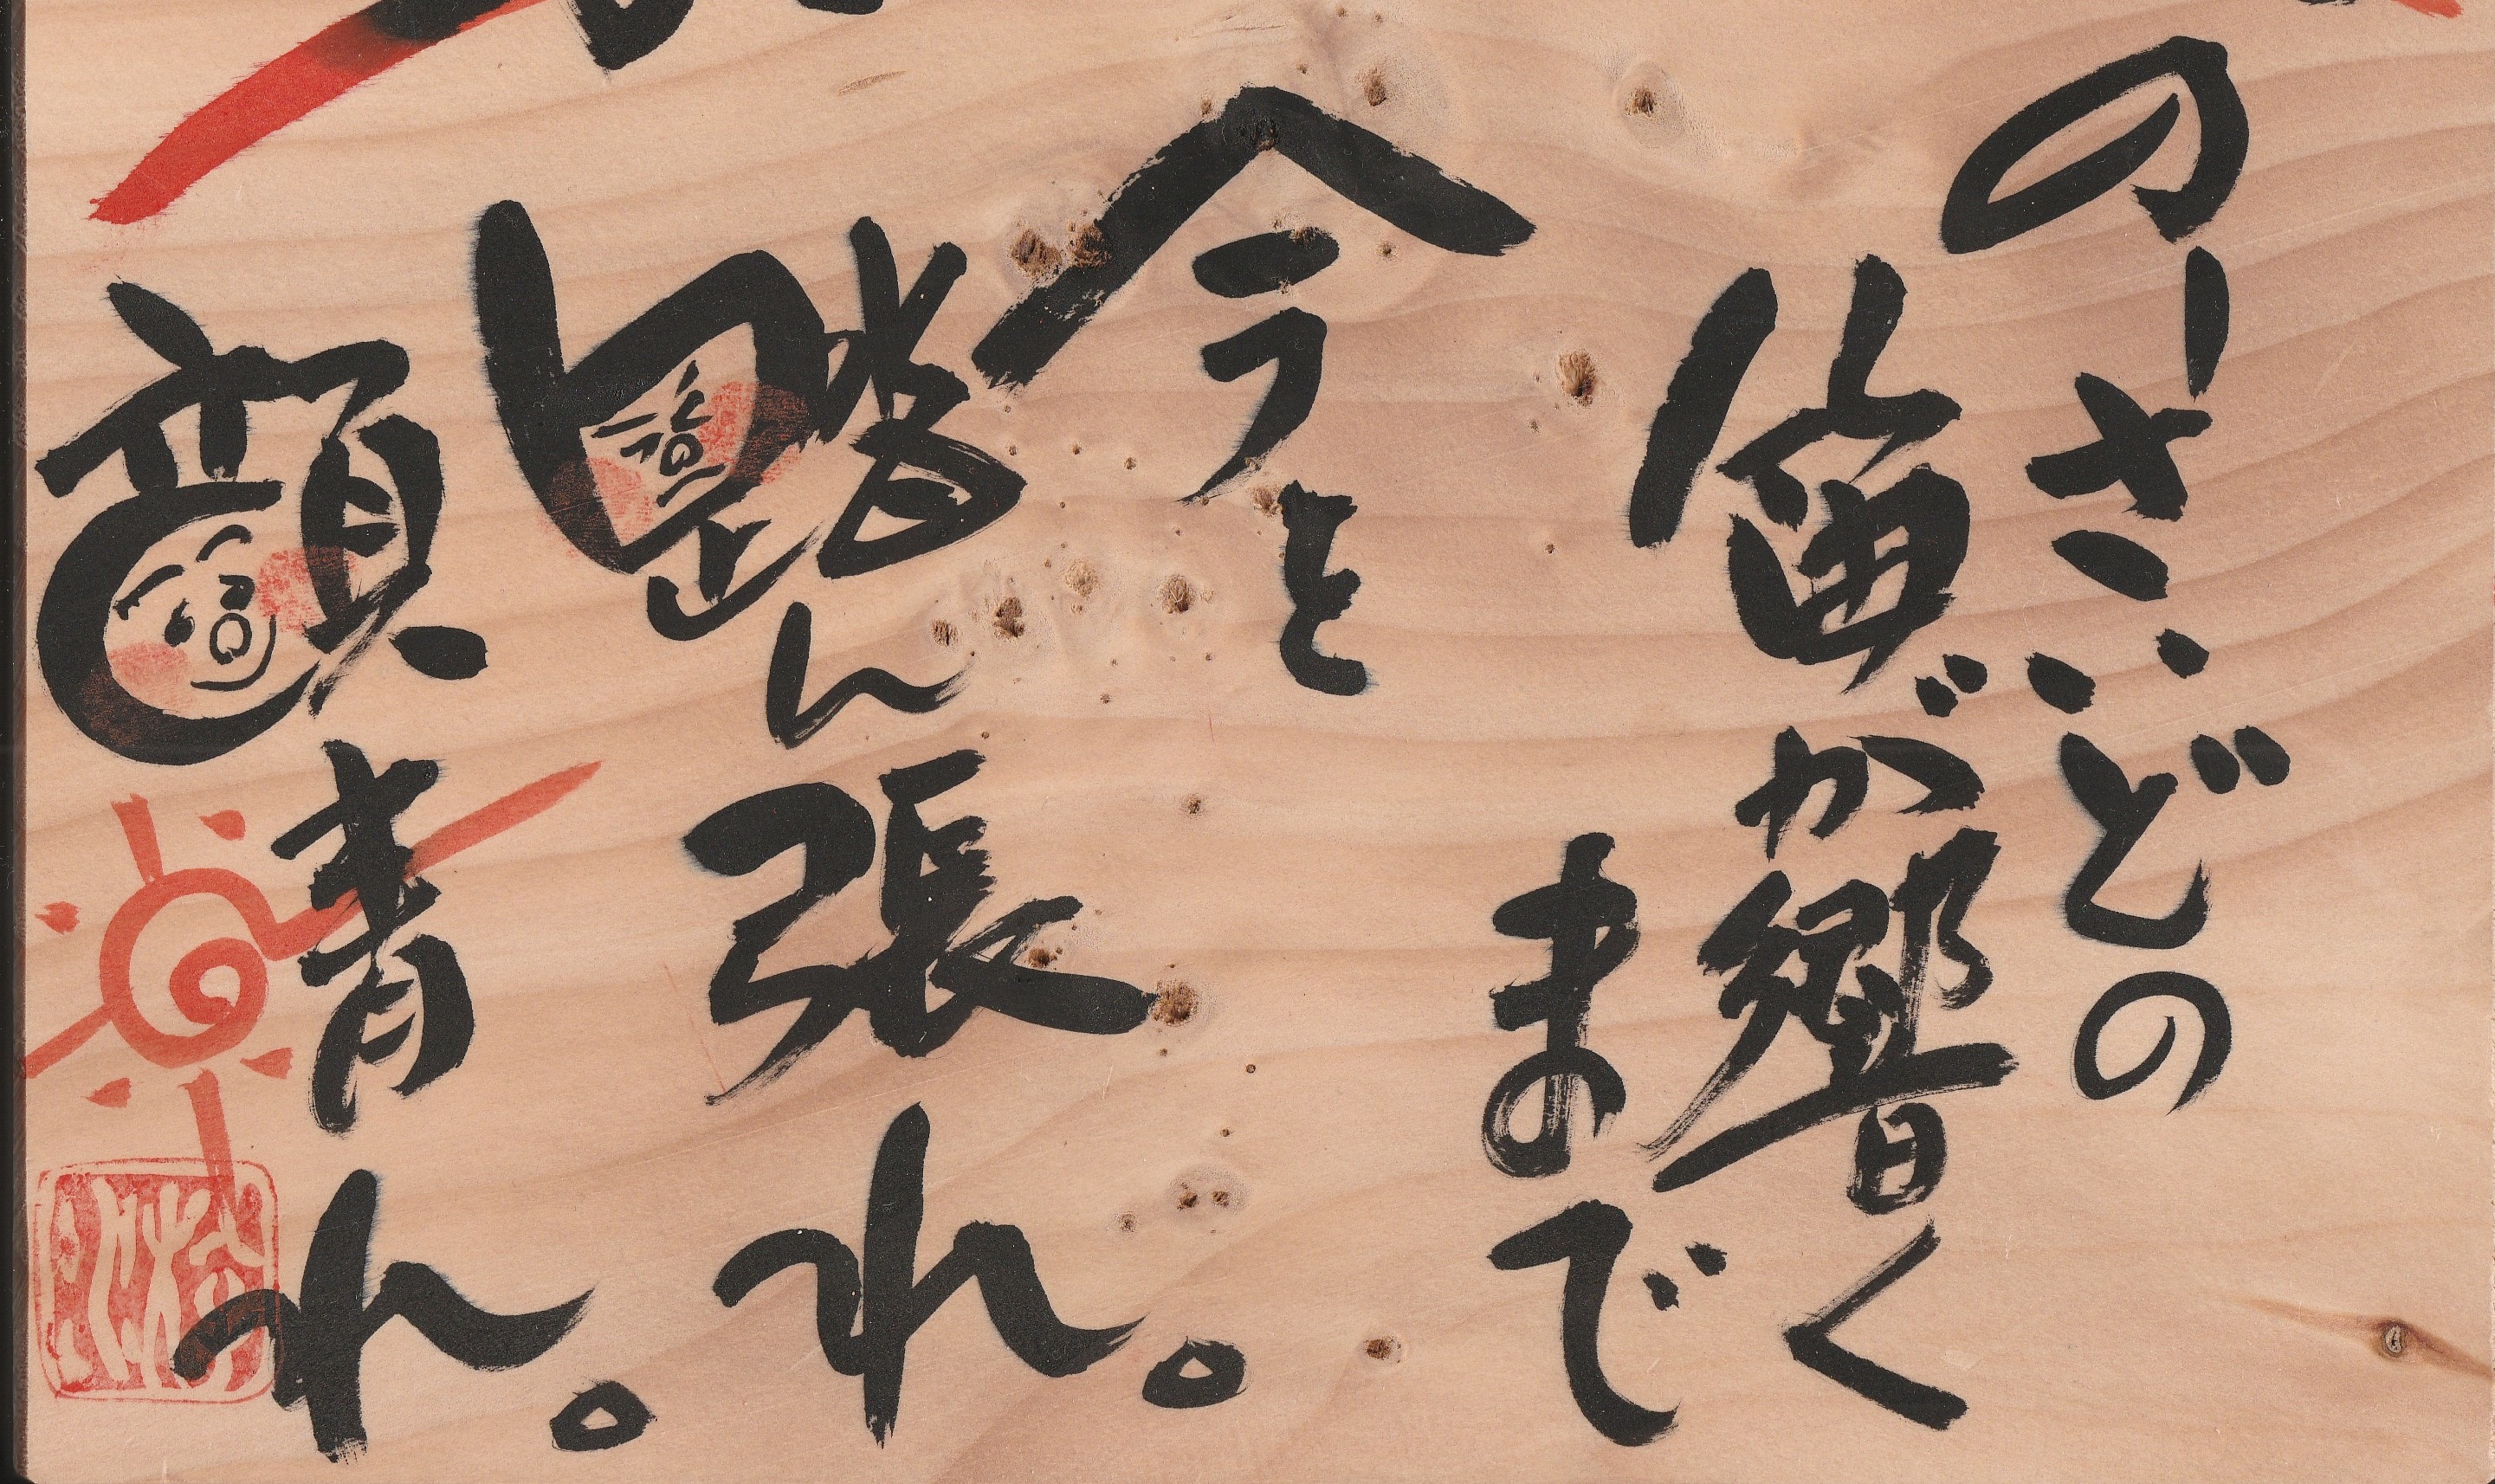 のーさいどの
笛が響く
まで
今を
踏ん張れ。
顔晴れ。